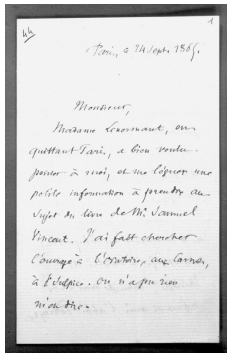 44
1
Paris, ce 24 Sept. 1865.
Monsieur,
Madame Lenormant, en
quittant Paris, a bien voulu
penser à moi, et me léguer une
petite information à prendre au
sujet du livre de Mr. Samuel
Vincent. J'ai fait chercher
l'ouvrage à l'oratoire, aux Carmes,
à St Sulpice. On n'a pu rien
m'en dire.